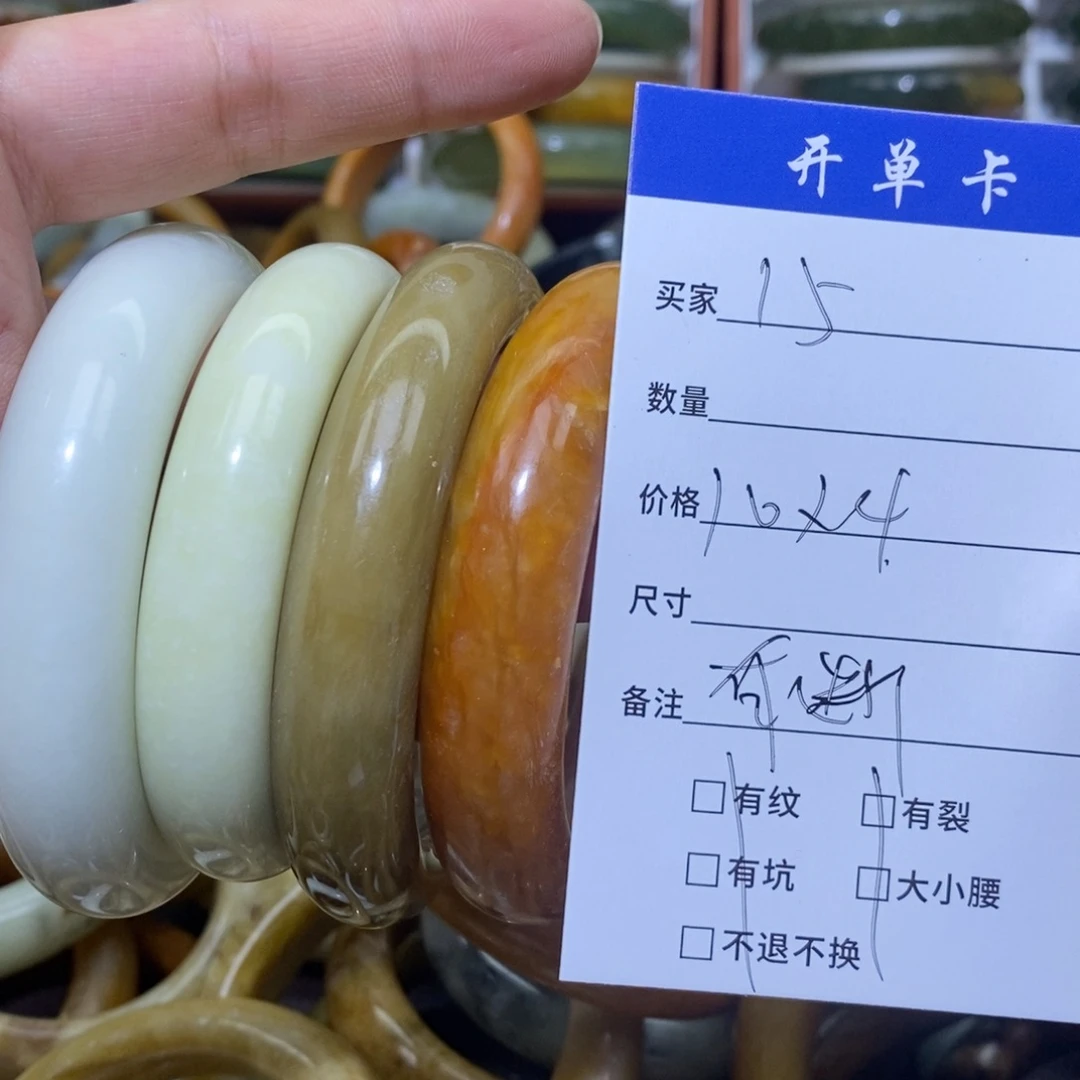 开单卡
买家 15
数量
价格 16x4
尺寸
备注
□有纹 □有裂
□有坑 □大小腰
□不退不换